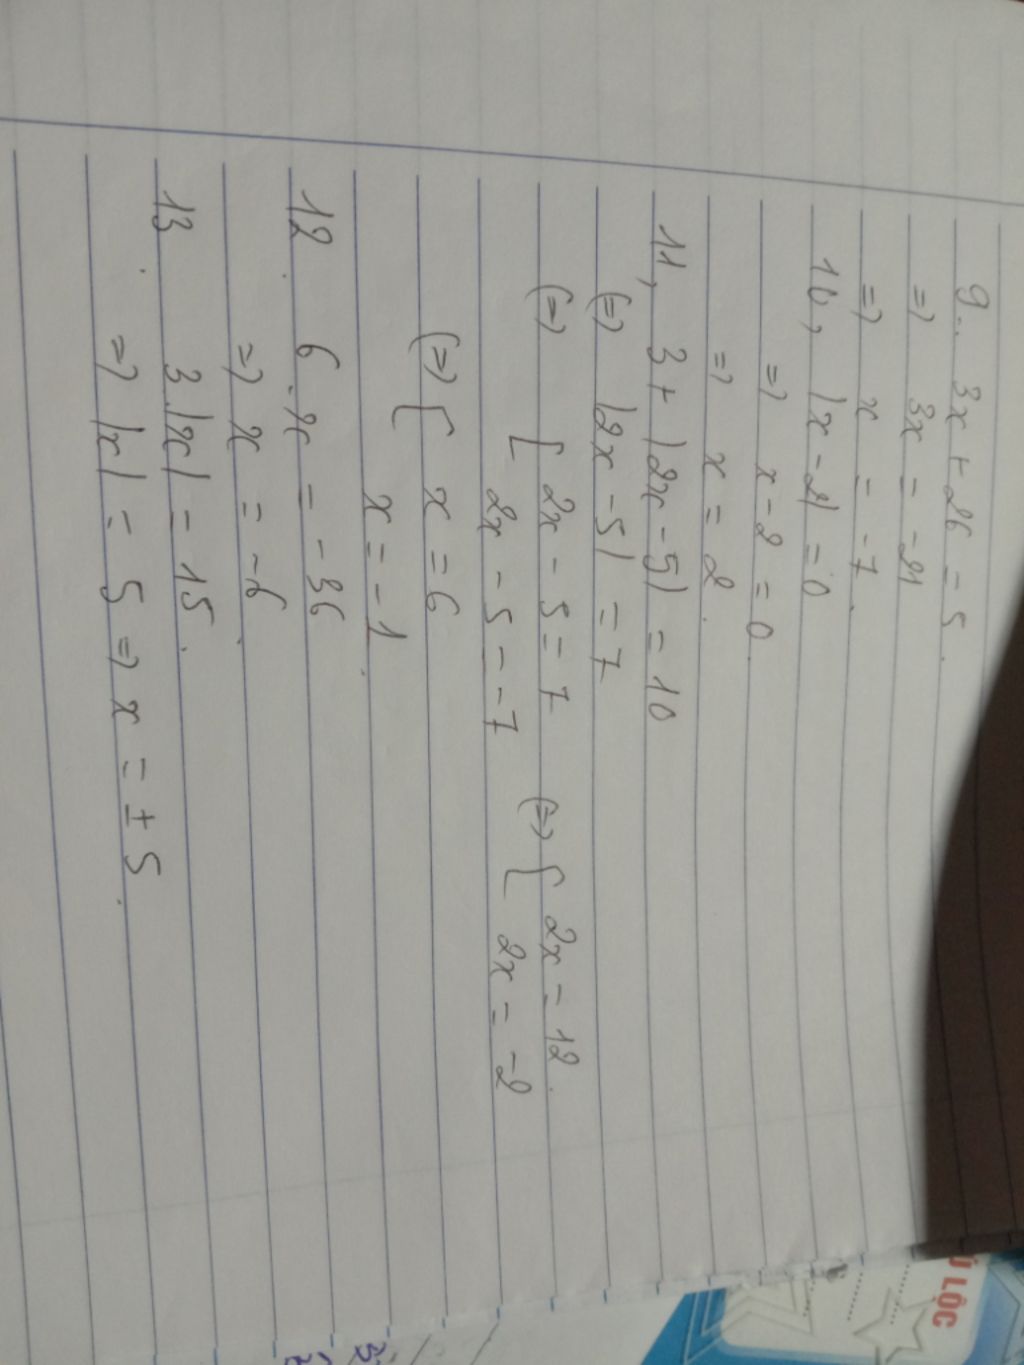 9. 3x + 26 = 5.
=> 3x = -21
=> x = -7.
10, |x-2| = 0
=> x - 2 = 0.
=> x = 2.
11, 3 + |2x - 5| = 10
(=) |2x - 5| = 7
(=> [ 2x - 5 = 7 (=> [ 2x = 12.
2x - 5 = -7 2x = -2
(=> [ x = 6
x = -1.
12. 6.x = -36
=> x = -6.
13. 3.|x| = 15.
=> |x| = 5 => x = ± 5.
LỘC